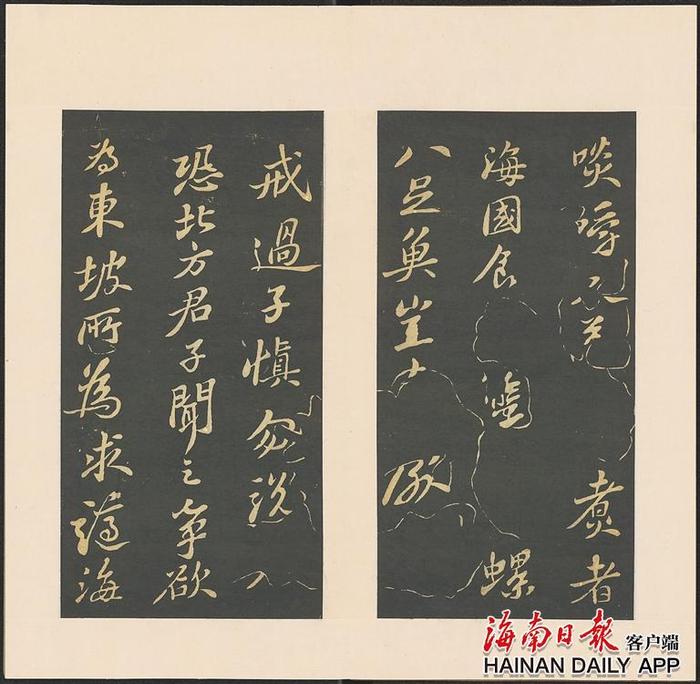 啖嚼 煮者
海國食 蟹 螺
八足魚豈 厭
戒過子慎勿說
恐北方君子聞之爭欲
為東坡所為求謫海
海南日报 客户端
HAINAN DAILY APP